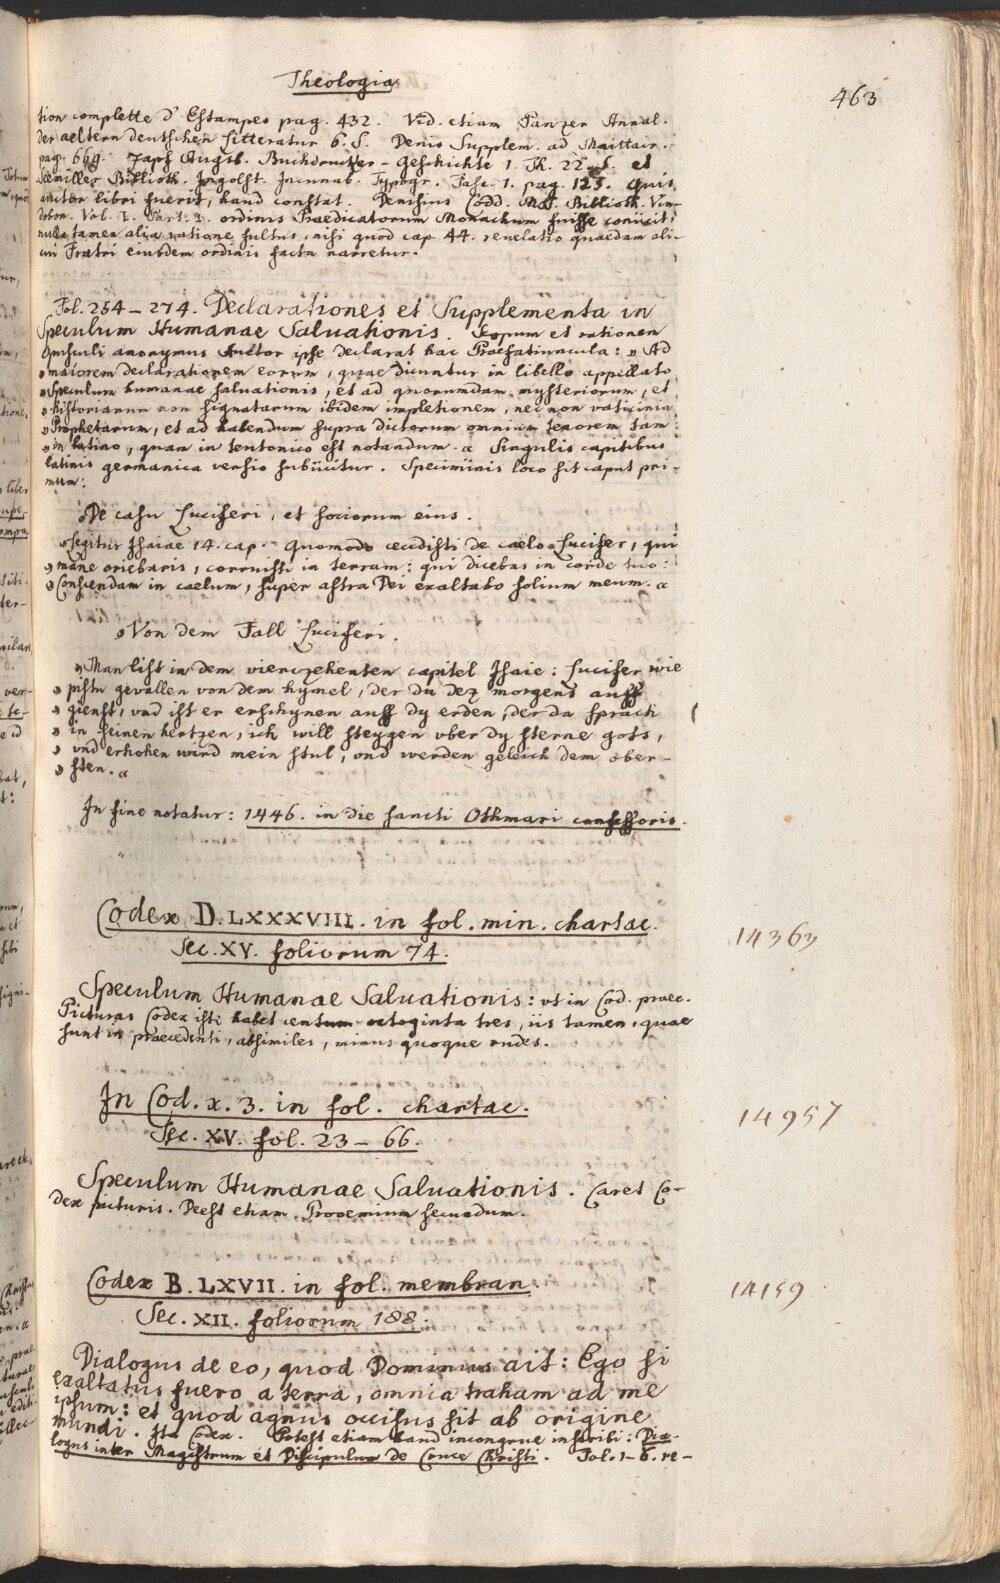 Theologia
463
tion complette d'Estampes pag. 432. Vid. etiam Panzer Annal.
der aeltern deutschen Litteratur 6. S. Denis Supplem. ad Maittair.
pag. 669. Zapf Augsb. Buchdrucker-Geschichte 1. Th. 22. S. et
Seemiller Biblioth. Ingolst. Incunab. Typogr. Fasc. 1. pag. 123. Quis
auctor libri fuerit, haud constat. Denisius Codd. MSS. Biblioth. Vin-
dobon. Vol. I. Part. I. ordinis Praedicatorum Monachum fuisse coniicit,
nulla tamen alia ratione fultus, nisi quod cap. 44. reuelatio quaedam ali-
cui Fratri eiusdem ordinis facta narretur.
Fol. 254-274. Declarationes et Supplementa in
Speculum Humanae Saluationis. Scopum et rationem
Opusculi anonymus Auctor ipse declarat hac Praefatiuncula: „ Ad
„ maiorem declarationem eorum, quae dicuntur in libello appellato
„ Speculum humanae saluationis, et ad quorumdam mysteriorum, et
„ historiarum non signatarum ibidem impletionem, nec non vaticinia
„ Prophetarum, et ad habendum supra dictorum omnium tenorem tam
„ in latino, quam in teutonico est notandum. “ Singulis capitibus
latinis germanica versio subiicitur. Speciminis loco sit caput pri-
mum:
„ De casu Luciferi, et sociorum eius.
„ Legitur Isaiae 14. cap. Quomodo cecidisti de caelo Lucifer, qui
„ mane oriebaris, corruisti in terram: qui dicebas in corde tuo:
„ Conscendam in caelum, super astra Dei exaltabo solium meum. “
„ Von dem Fall Luciferi.
„ Man list in dem vierczehenten capitel Isaie: Lucifer wie
„ pistu gevallen von dem hymel, der du dez morgens auff
„ gienst, vnd ist er erschynen auff dy erden, der da sprach
„ in seinen hertzen, ich will steygen vber dy sterne gots,
„ vnd erhohen wird mein stul, vnd werden geleich dem ober-
„ sten. “
In fine notatur: 1446. in die sancti Othmari confessoris.
Codex D. LXXXVIII. in fol. min. chartac.
14363
Sec. XV. foliorum 74.
Speculum Humanae Saluationis: vt in Cod. praec.
Picturas Codex iste habet centum octoginta tres, iis tamen, quae
sunt in praecedenti, absimiles, minus quoque rudes.
In Cod. x. 3. in fol. chartac.
14957
Sec. XV. fol. 23-66.
Speculum Humanae Saluationis. Caret Co-
dex picturis. Deest etiam Prooemium secundum.
Codex B. LXVII. in fol. membran.
14159
Sec. XII. foliorum 188.
Dialogus de eo, quod Dominus ait: Ego si
exaltatus fuero a terra, omnia traham ad me
ipsum: et quod agnus occisus sit ab origine
mundi. Ita Codex. Potest etiam haud incongrue inscribi: Dia-
logus inter Magistrum et Discipulum de Cruce Christi. Fol. 1-6. re-